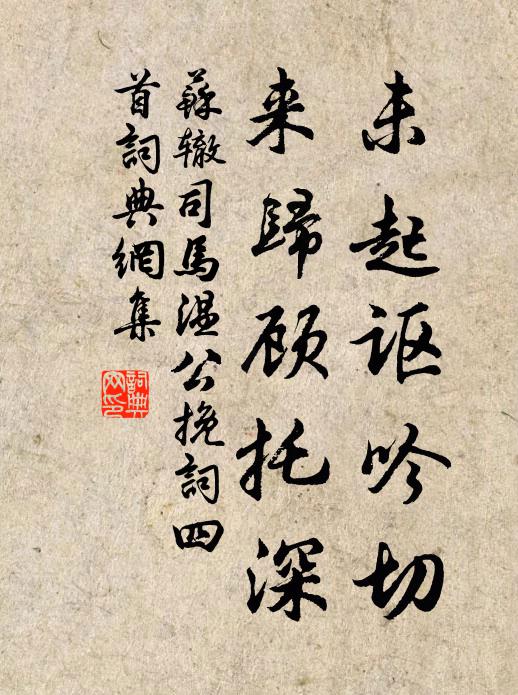 未起讴吟切
来歸顾托深
蘇辙司馬温公挽詞四
首詞典網集
詞典
网印